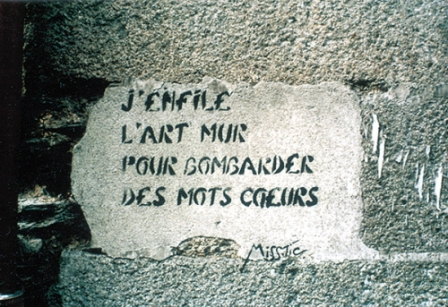 J'ENFILE
L'ART MUR
POUR BOMBARDER
DES MOTS CŒURS
Miss.Tic